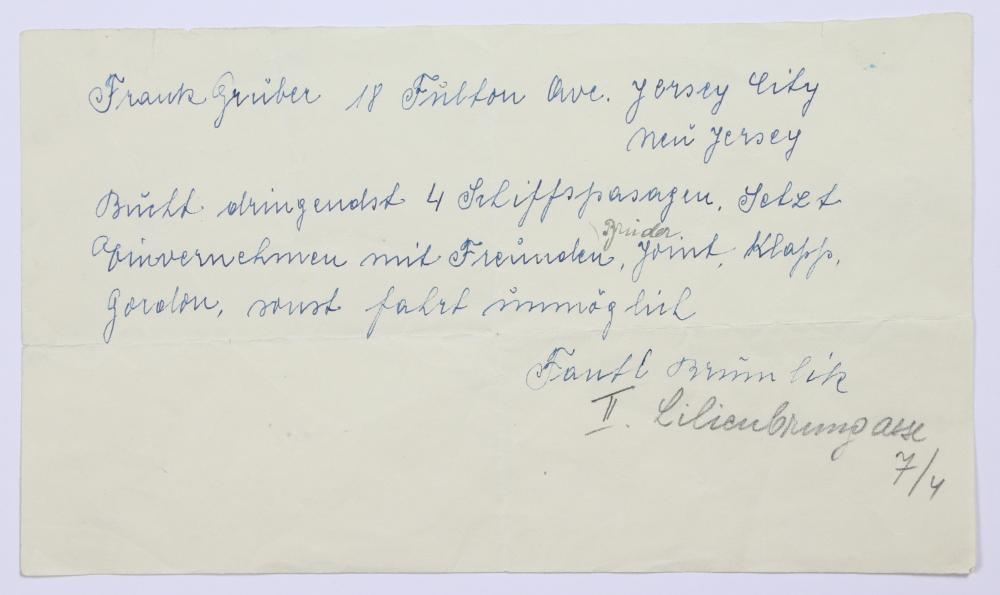 Frank Gruber 18 Fulton Ave. Jersey City
Neu Jersey
Bucht dringendst 4 Schiffspasagen, Setzt
Bruder
Einvernehmen mit Freunden, Joint, Klapp,
Gordon, sonst fahrt unmöglich
Fantl Brumlik
II. Lilienbrungasse
7/4